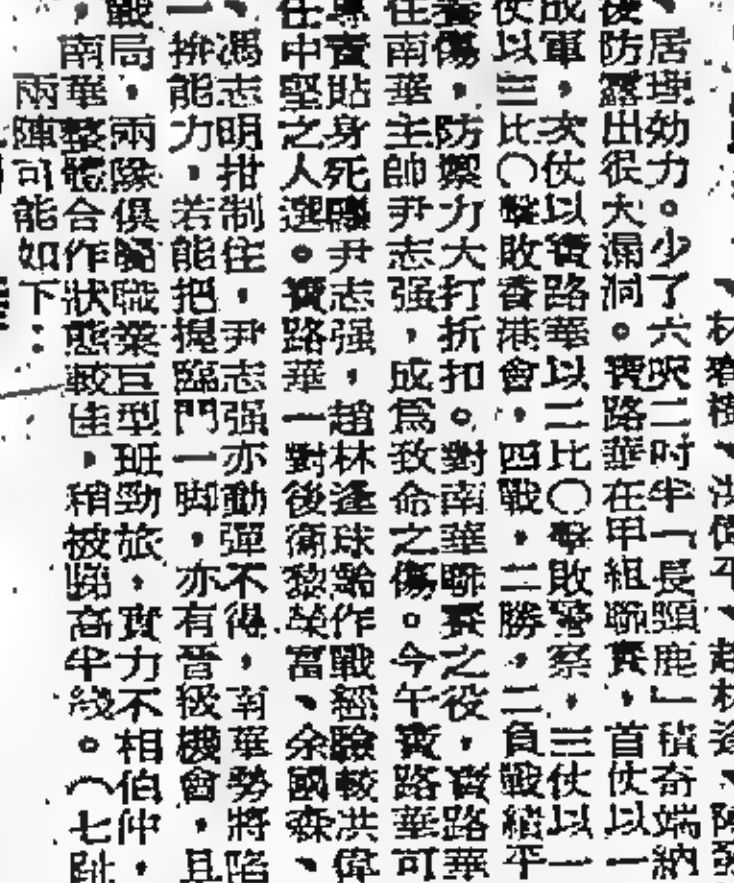 、林
、洪偉平、趙林
、居理効力。少了六呎二吋半「長頸鹿」積奇端納
後防露出很大漏洞。寶路華在甲組聯賽，首仗以一
成軍，次仗以寶路華以二比〇擊敗警察，三仗以一
仗以三比〇擊敗香港會，四戰，二勝，二負戰績平
養傷，防禦力大打折扣。對南華聯賽之役，寶路華
在南華主帥尹志强，成爲致命之傷。今午寶路華可
專責貼身死纏尹志强，趙林逢球齡作戰經驗較洪偉
任中堅之人選。寶路華一對後衞黎榮富、余國森、
、馮志明拑制住，尹志强亦動彈不得，南華勢將陷
一拚能力，若能把握臨門一脚，亦有晉級機會，且
戰局，兩隊俱屬職業巨型班勁旅，實力不相伯仲，
南華整體合作狀態較佳，稍被睇高半綫。（七
兩陣可能如下：